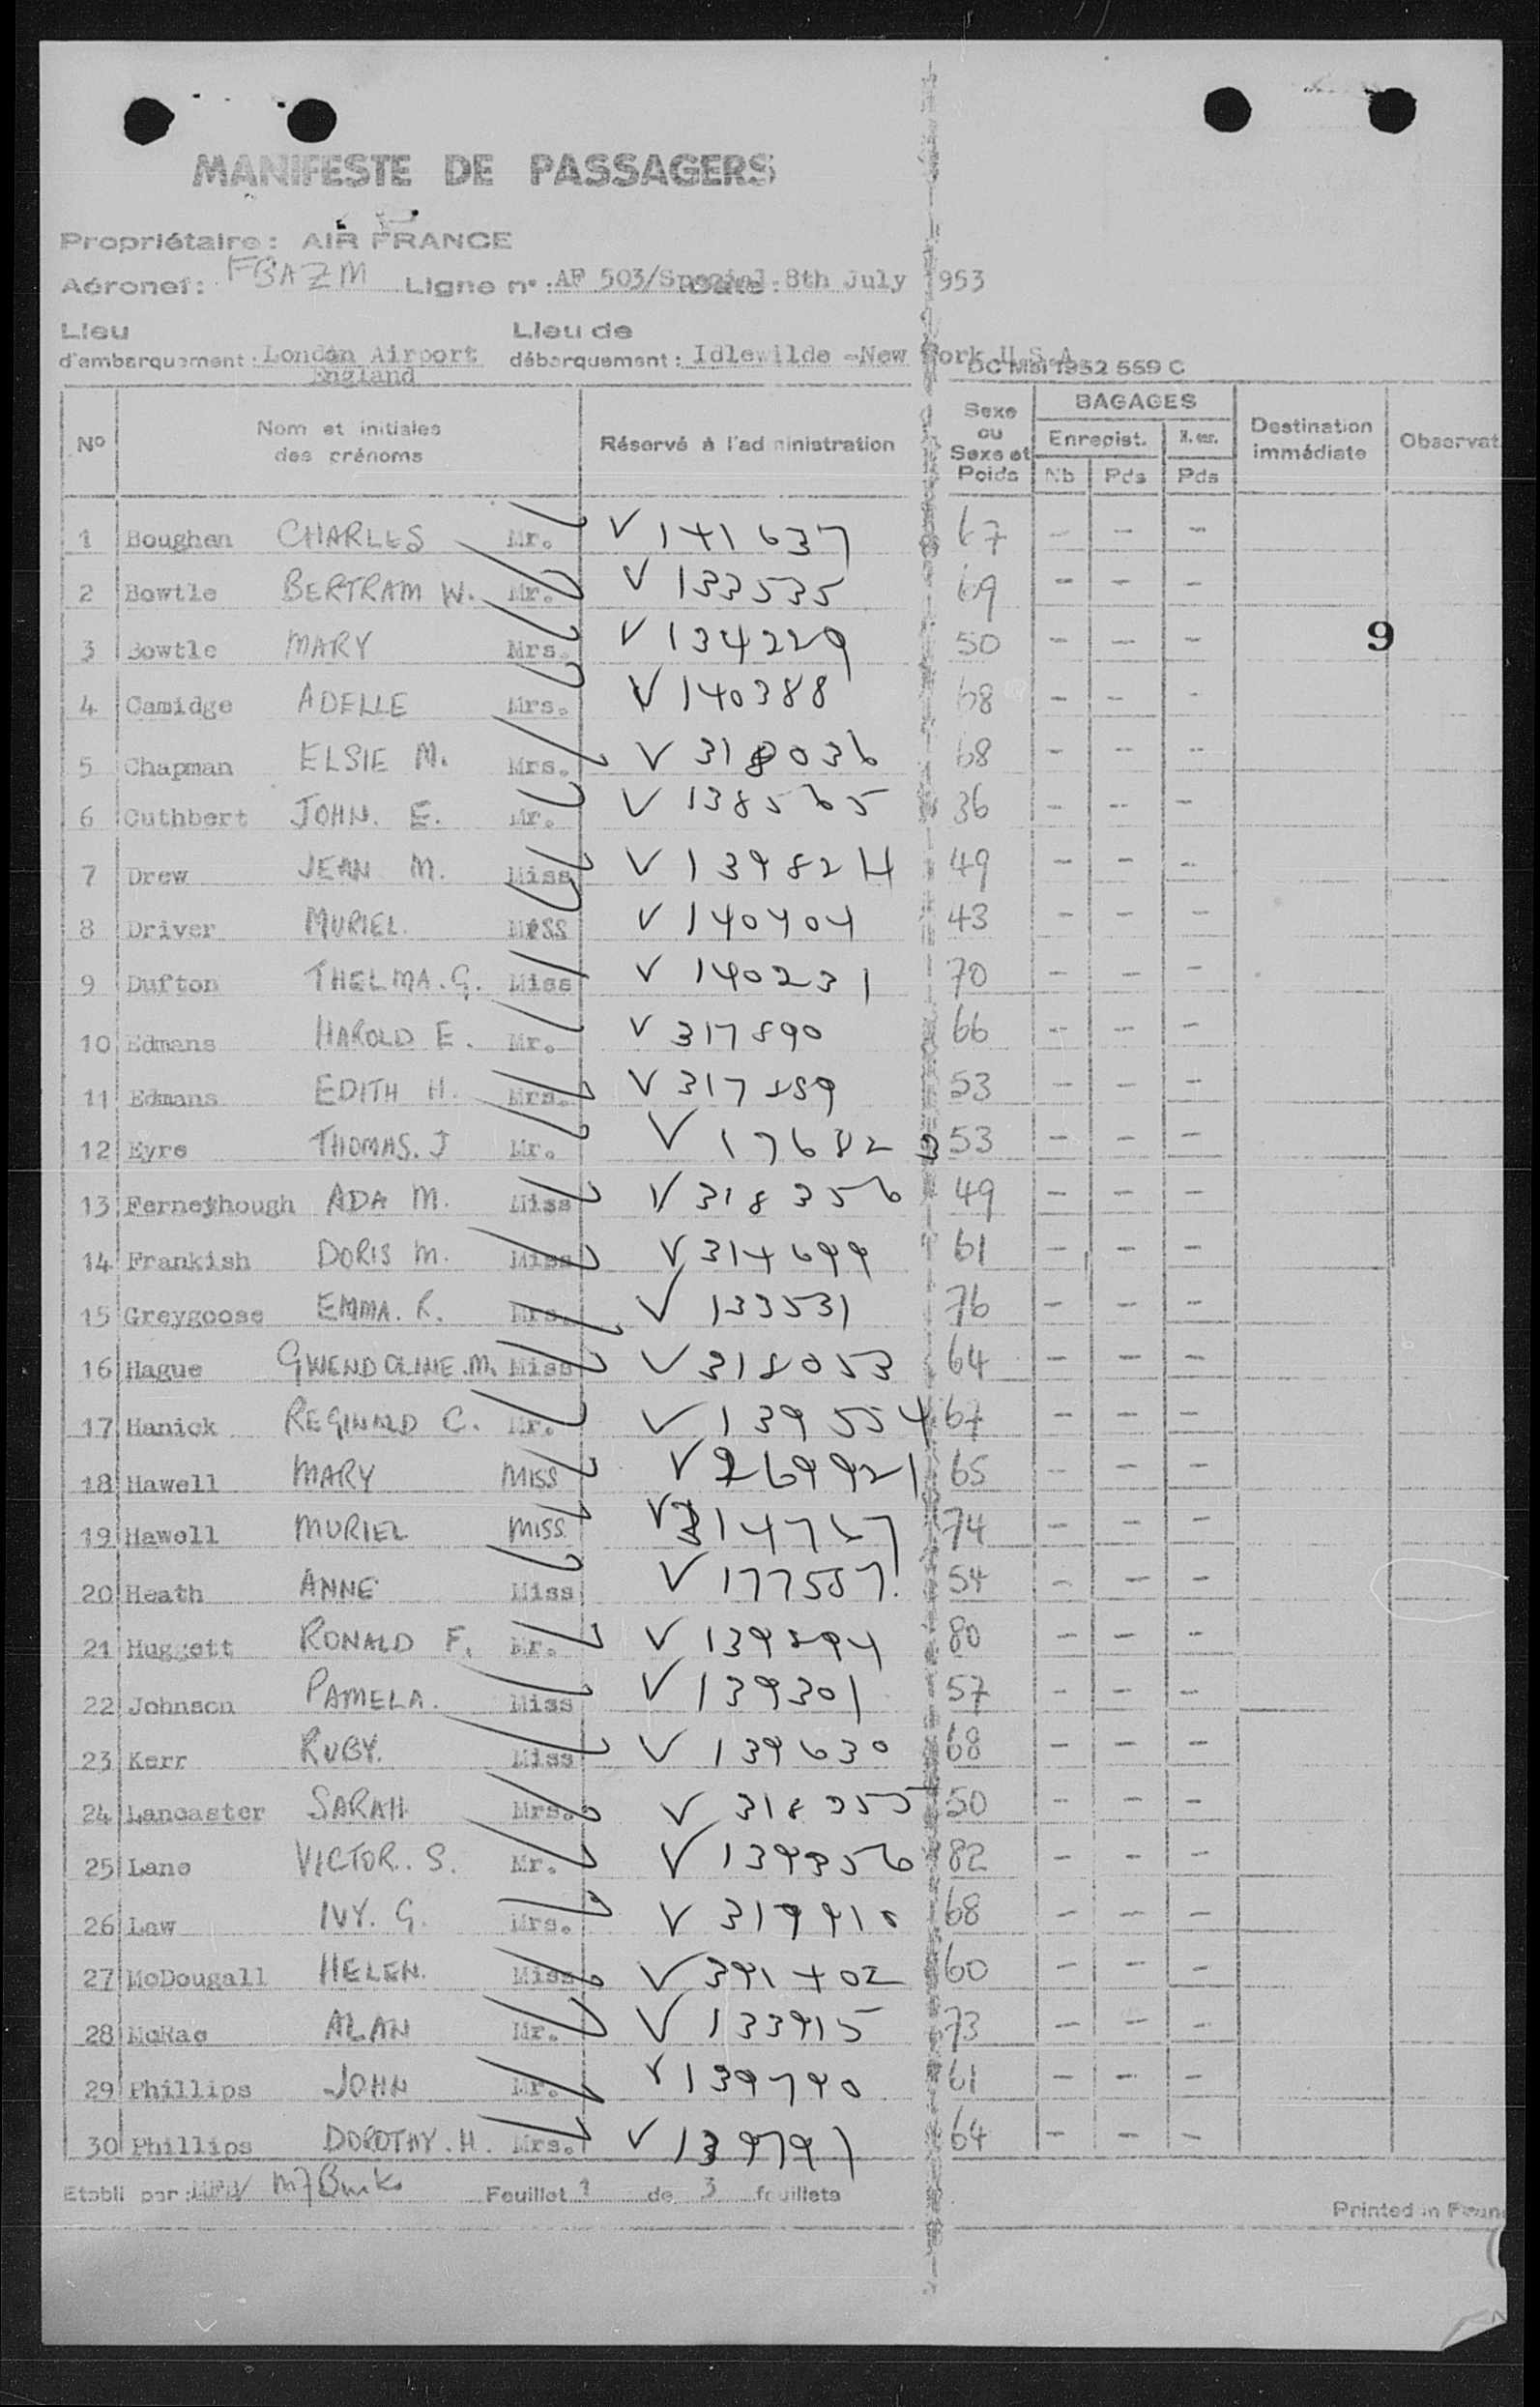 MANIFESTE DE PASSAGERS
Propriétaire: AIR FRANCE
Aéronef: FBAZM Ligne n°: AF 503/Special Date: 8th July 1953
Lieu d'embarquement: London Airport England Lieu de débarquement: Idlewilde -New York U.S.A
DC Mai 1952 559 C
N° Nom et initiales des prénoms Réservé à l'administration Sexe ou Sexe et Poids BAGAGES Enregist. Nb Pds Pds Destination immédiate Observat
1 Boughen CHARLES Mr. V 141637 67 - - -
2 Bowtle BERTRAM W. Mr. V 133535 69 - - -
3 Bowtle MARY Mrs. V 134229 50 - - - 9
4 Camidge ADELLE Mrs. V 140388 68 - - -
5 Chapman ELSIE M. Mrs. V 318036 68 - - -
6 Cuthbert JOHN. E. Mr. V 138565 36 - - -
7 Drew JEAN M. Miss V 139824 49 - - -
8 Driver MURIEL. MISS V 140404 43 - - -
9 Dufton THELMA. G. Miss V 140231 70 - - -
10 Edmans HAROLD E. Mr. V 317890 66 - - -
11 Edmans EDITH H. Mrs. V 317889 53 - - -
12 Eyre THOMAS. J Mr. V 176823 53 - - -
13 Ferneyhough ADA M. Miss V 318356 49 - - -
14 Frankish DORIS M. Miss V 314699 61 - - -
15 Greygoose EMMA. R. Mrs. V 133531 76 - - -
16 Hague GWENDOLINE. M. Miss V 318053 64 - - -
17 Hanick REGINALD C. Mr. V 139554 67 - - -
18 Hawell MARY MISS V 269921 65 - - -
19 Hawell MURIEL MISS V 314767 74 - - -
20 Heath ANNE Miss V 177557. 54 - - -
21 Huggett RONALD F. Mr. V 139894 80 - - -
22 Johnson PAMELA. Miss V 139301 57 - - -
23 Kerr RUBY. Miss V 139630 68 - - -
24 Lancaster SARAH Mrs. V 318355 50 - - -
25 Lane VICTOR. S. Mr. V 139356 82 - - -
26 Law IVY. G. Mrs. V 319910 68 - - -
27 McDougall HELEN. Miss V 391402 60 - - -
28 McRae ALAN Mr. V 133915 73 - - -
29 Phillips JOHN Mr. V 139790 61 - - -
30 Phillips DOROTHY. H. Mrs. V 139791 64 - - -
Etabli par: Feuillet 1 de 3 feuillets
Printed in Fran